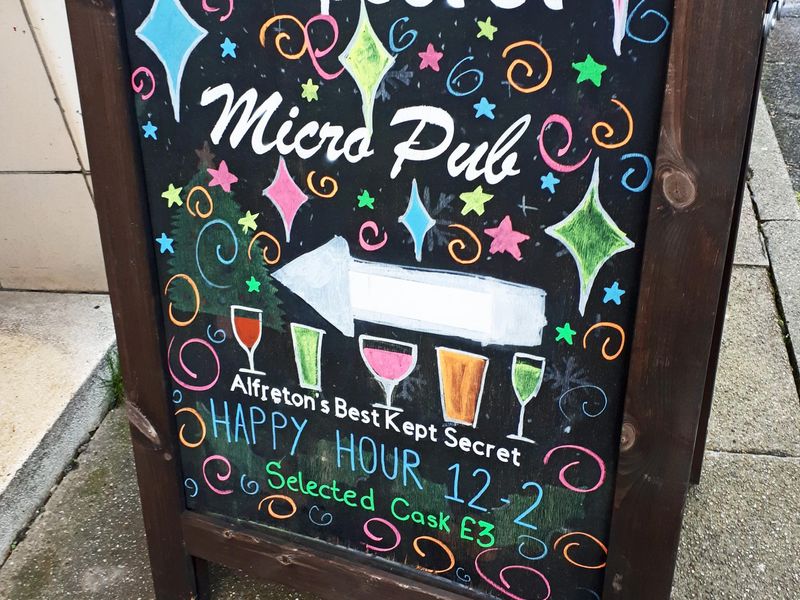 Micro Pub
Alfreton's Best Kept Secret
HAPPY HOUR 12-2
Selected Cask £3